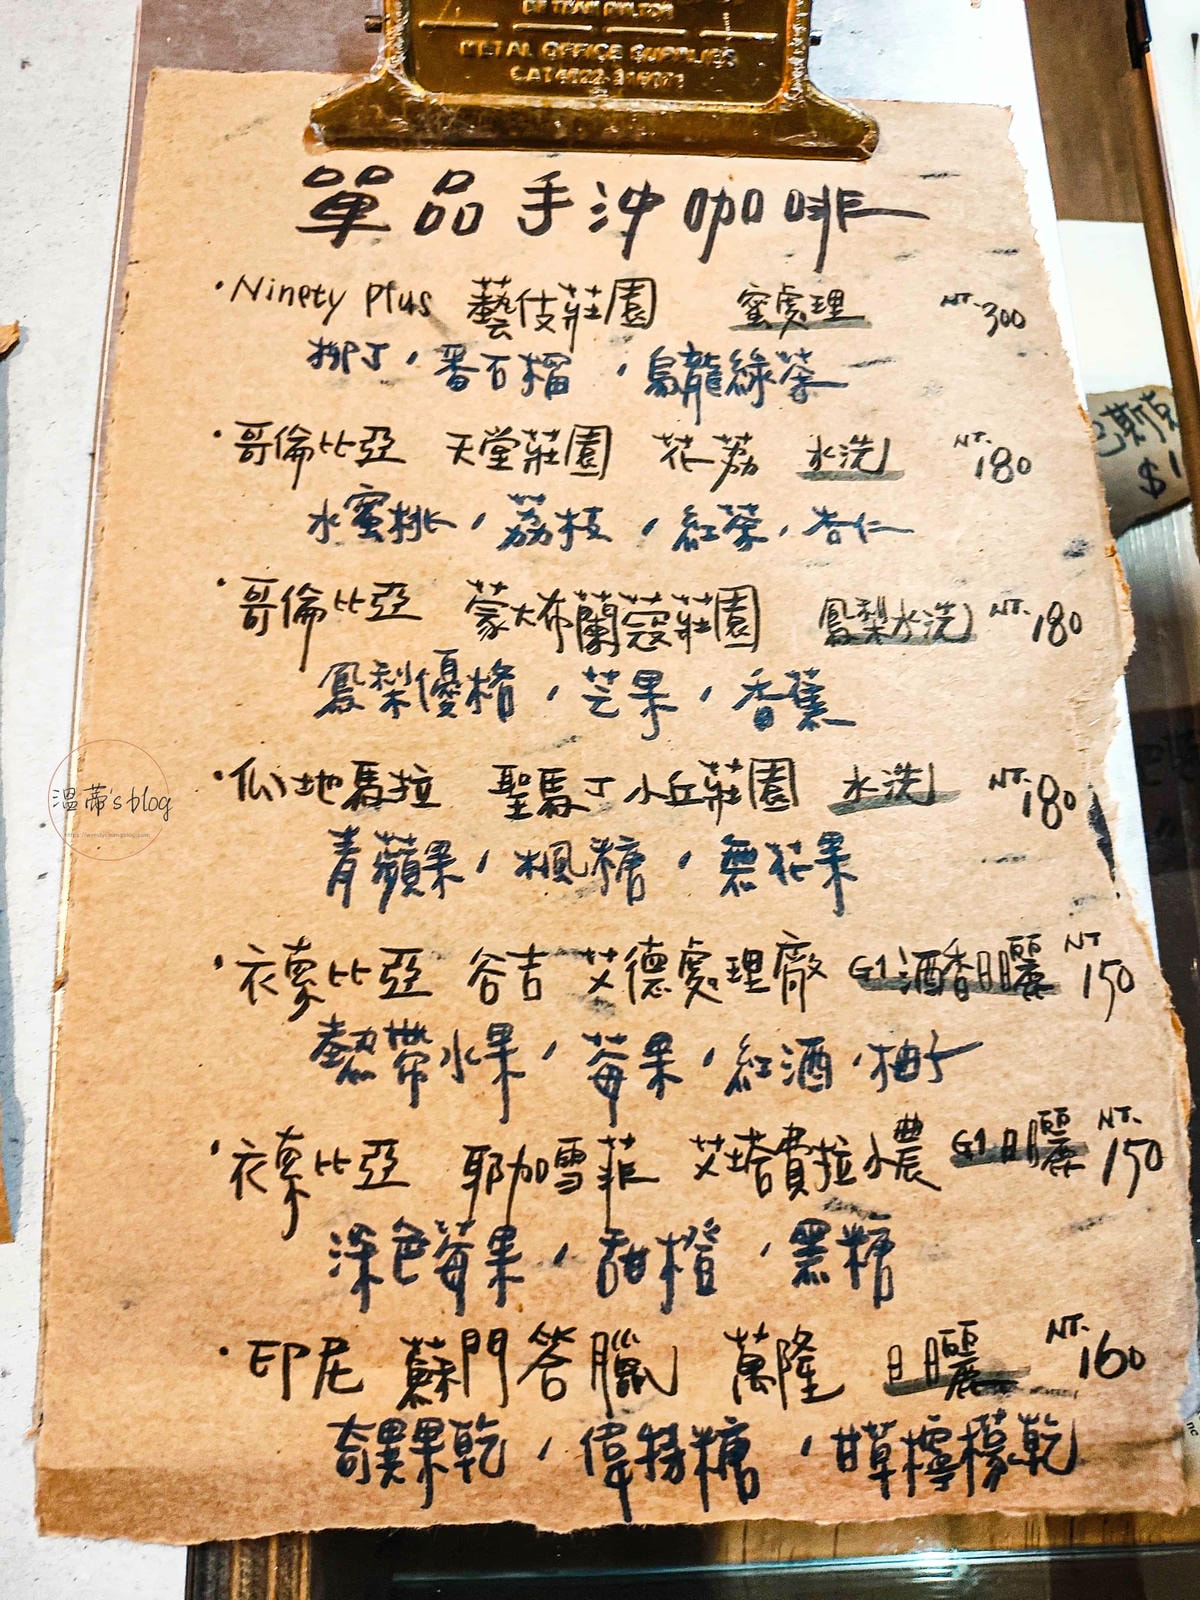 METAL OFFICE SUPPLIES
單品手沖咖啡
·Ninety Plus 藝伎莊園 蜜處理 NT.300
柳丁，番石榴，烏龍綠茶
·哥倫比亞 天堂莊園 花荔 水洗 NT.180
水蜜桃，荔枝，紅茶，杏仁
·哥倫比亞 蒙大布蘭蔻莊園 鳳梨水洗 NT.180
鳳梨優格，芒果，香蕉
·瓜地馬拉 聖馬丁小丘莊園 水洗 NT.180
青蘋果，楓糖，無花果
·衣索比亞 谷吉 艾德處理廠 G1酒香日曬 NT 150
熱帶水果，莓果，紅酒，柚子
·衣索比亞 耶加雪菲 艾塔費拉小農 G1日曬 NT.150
深色莓果，甜橙，黑糖
·印尼 蘇門答臘 萬隆 日曬 NT.160
奇異果乾，偉特糖，甘草檸檬乾
溫蒂's blog
巴斯克
$1